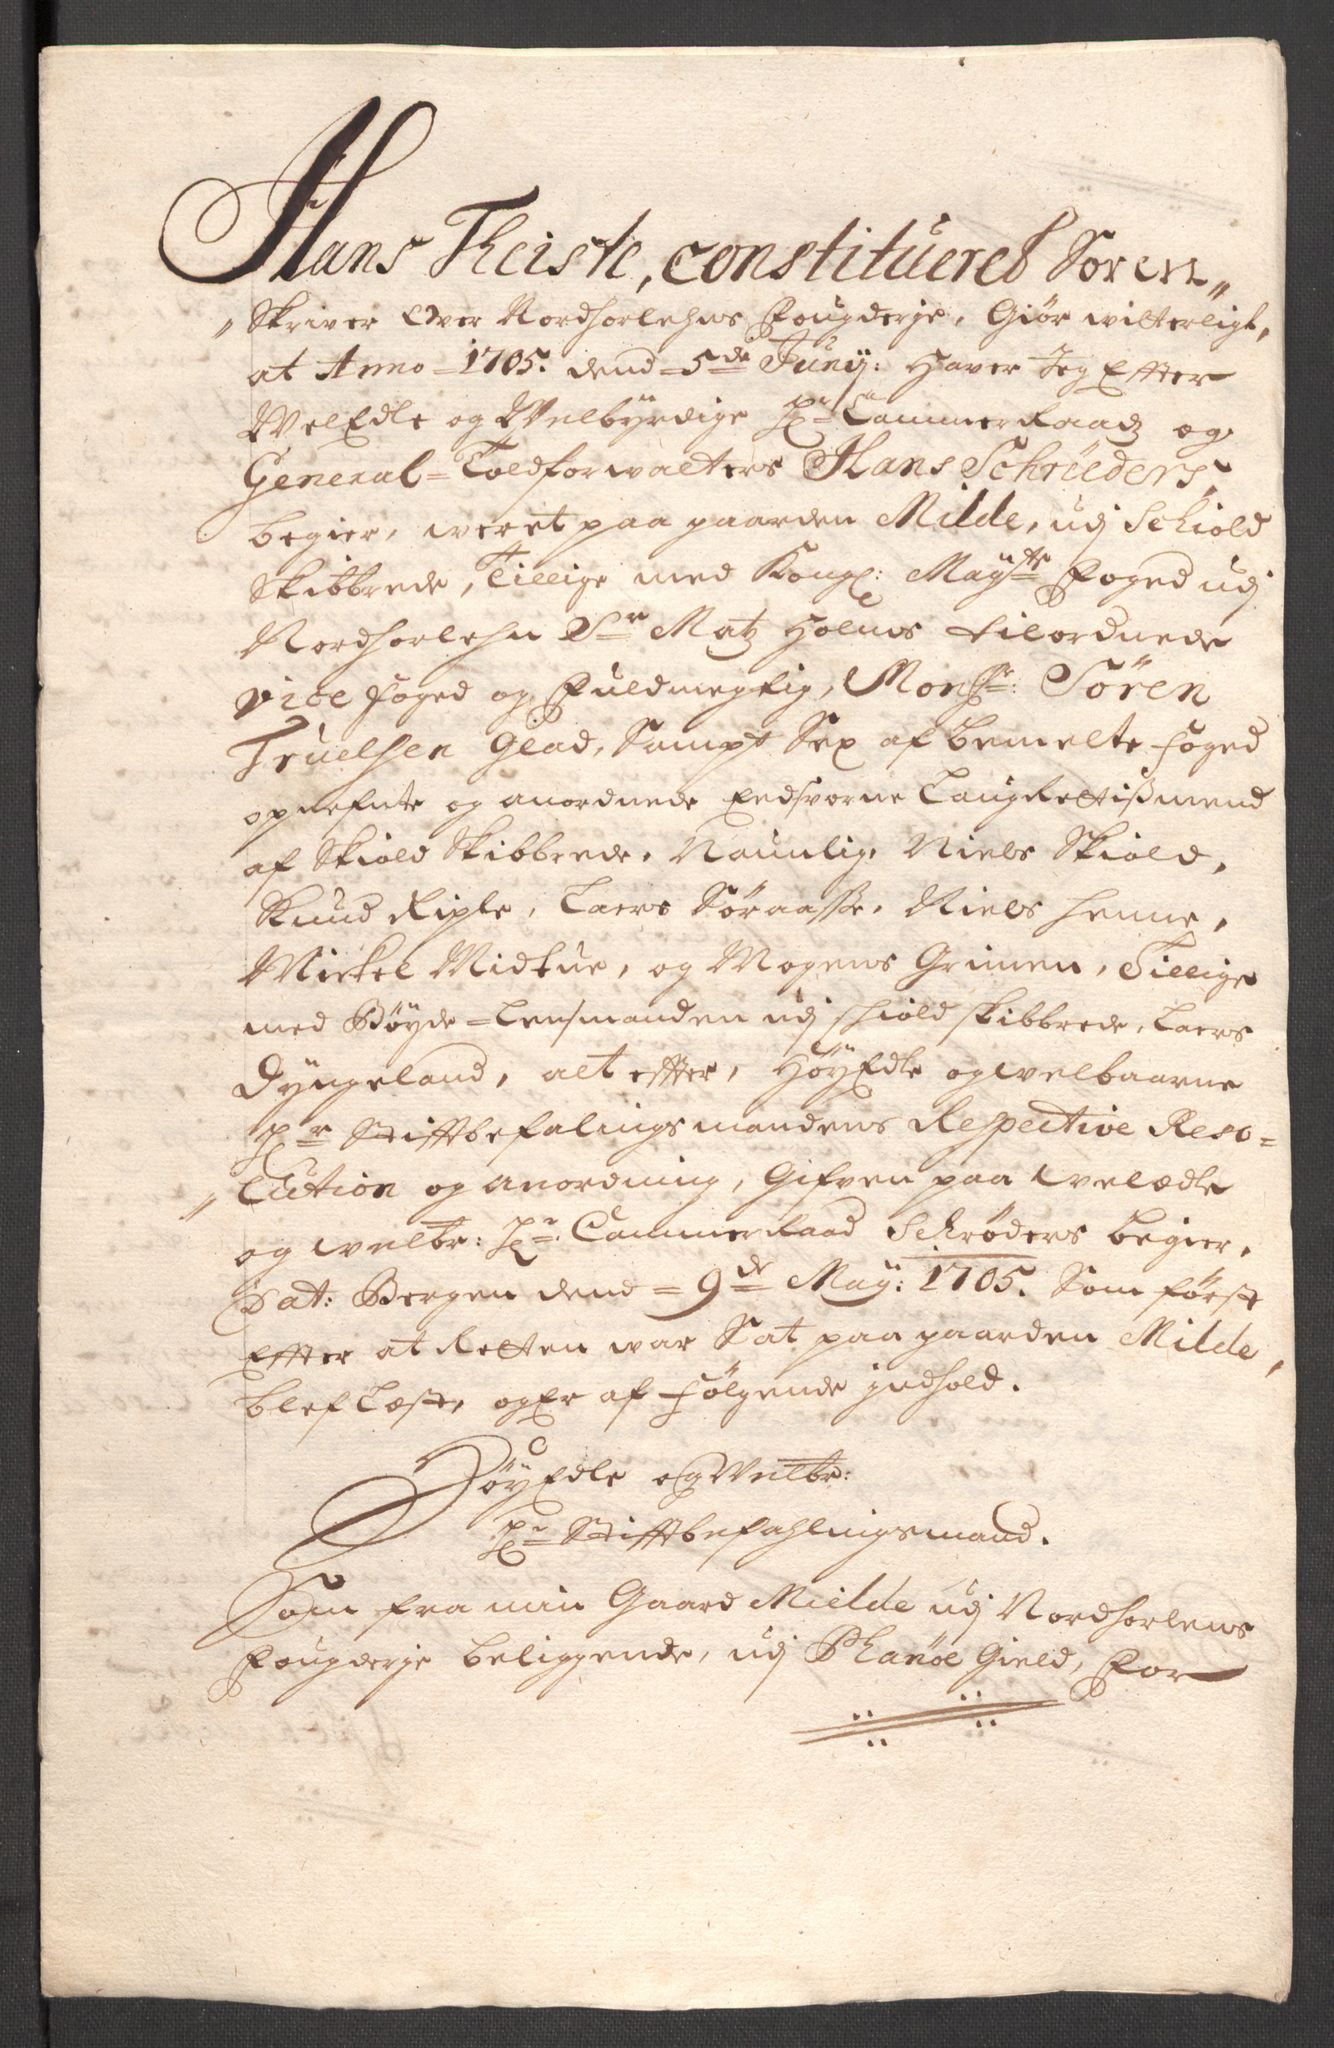 Hans Theiste, constitueret Soren„
„Skriver Over Nordhorlehns Fougderje, Giör witterligt,
at Anno = 1705. dend = 5de Junij: Haver Jeg Effter
WelEdle og Welbyrdige Hr. CammerRaad og
General = Toldforwalters Hans Schrøeders
begier, weret paa gaarden Milde, udj Schiold
Skibbrede, Tillige med Kongl: Mayts Foged udj
Nordhorlehn Sr Matz Holms tilordnede
vice foged og Fuldmegtig, Monsr: Sören
Truelsen Glad, Sampt Sex af bemelte foged
opnefnte og anordnede Eedsvorne Laugrettißmend
af Skiold Skibbrede, Naunlig, Niels Skiold,
Knud Riple, Laers Söraasse, Niels Henne,
Mickel Midtue, og Mogens Grimen, Tillige
med Böyde = Lensmanden udj Schiold skibbrede, Laers
Dyngeland, alt effter, HöyEdle og welbaarne
Hr Stiftbefalingsmandens Respective Reso=
„lution og anordning, Gifven paa welædle
og welbr: Hr. CammerRaad Schrøders begier,
Dat: Bergen dend = 9de May: 1705. Som först
Effter at Retten war Sat paa gaarden Milde,
blef Læst, og Er af følgende jndhold.
HöyEdle og Welbr:
Hr Stifftbefahlingsmand.
Som fra min Gaard Mielde udj Nordhorlens
Fougderje beliggende, udj Phanöe Gield, For